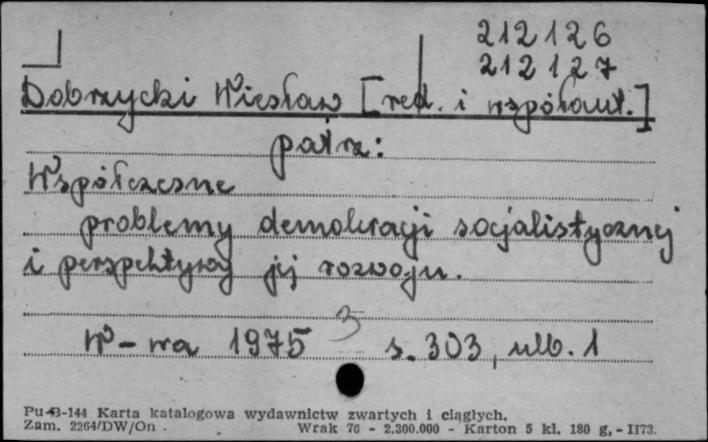 212126
212127
Dobrzycki Wiesław [red. i współaut.]
patrz:
Współczesne
problemy demokracji socjalistycznej
i perspektywy jej rozwoju.
3
W-wa 1975 s. 303, nlb. 1
Pu-B-144 Karta katalogowa wydawnictw zwartych i ciągłych.
Zam. 2264/DW/On . Wrak 76 - 2.300.000 - Karton 5 kl. 180 g, - II73.